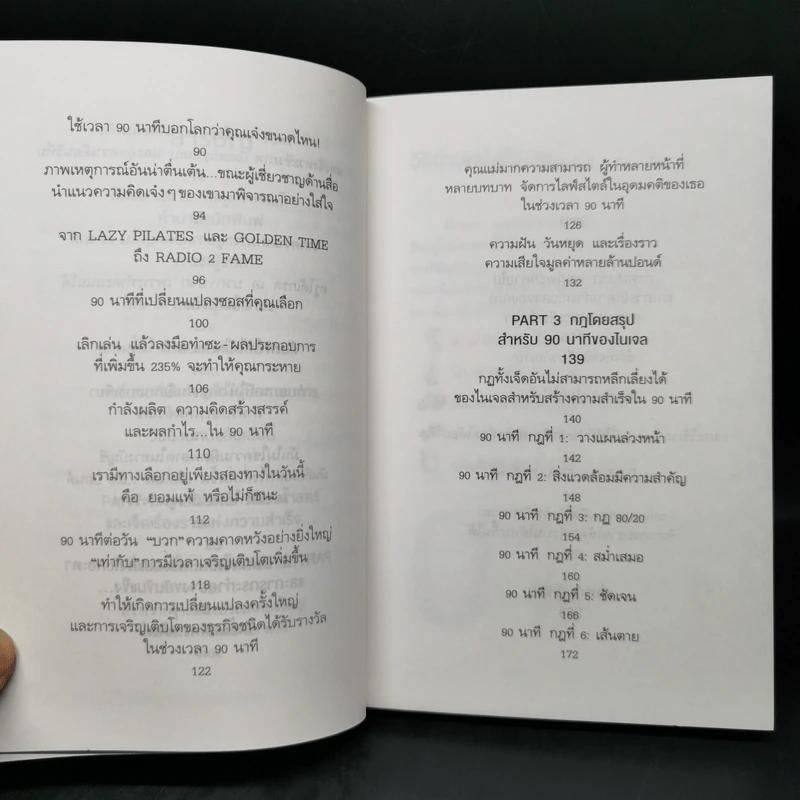 ใช้เวลา 90 นาทีบอกโลกว่าคุณเจ๋งขนาดไหน!
90
ภาพเหตุการณ์อันน่าตื่นเต้น...ขณะผู้เชี่ยวชาญด้านสื่อ
นำแนวความคิดเจ๋งๆ ของเขามาพิจารณาอย่างใส่ใจ
94
จาก LAZY PILATES และ GOLDEN TIME
ถึง RADIO 2 FAME
96
90 นาทีที่เปลี่ยนแปลงซอสที่คุณเลือก
100
เลิกเล่น แล้วลงมือทำซะ-ผลประกอบการ
ที่เพิ่มขึ้น 235% จะทำให้คุณกระหาย
106
กำลังผลิต ความคิดสร้างสรรค์
และผลกำไร...ใน 90 นาที
110
เรามีทางเลือกอยู่เพียงสองทางในวันนี้
คือ ยอมแพ้ หรือไม่ก็ชนะ
112
90 นาทีต่อวัน "บวก" ความคาดหวังอย่างยิ่งใหญ่
"เท่ากับ" การมีเวลาเจริญเติบโตเพิ่มขึ้น
118
ทำให้เกิดการเปลี่ยนแปลงครั้งใหญ่
และการเจริญเติบโตของธุรกิจชนิดได้รับรางวัล
ในช่วงเวลา 90 นาที
122
คุณแม่มากความสามารถ ผู้ทำหลายหน้าที่
หลายบทบาท จัดการไลฟ์สไตล์ในอุดมคติของเธอ
ในช่วงเวลา 90 นาที
126
ความฝัน วันหยุด และเรื่องราว
ความเสียใจมูลค่าหลายล้านปอนด์
132
PART 3 กฎโดยสรุป
สำหรับ 90 นาทีของไนเจล
139
กฎทั้งเจ็ดอันไม่สามารถหลีกเลี่ยงได้
ของไนเจลสำหรับสร้างความสำเร็จใน 90 นาที
140
90 นาที กฎที่ 1: วางแผนล่วงหน้า
142
90 นาที กฎที่ 2: สิ่งแวดล้อมมีความสำคัญ
148
90 นาที กฎที่ 3: กฎ 80/20
154
90 นาที กฎที่ 4: สม่ำเสมอ
160
90 นาที กฎที่ 5: ชัดเจน
166
90 นาที กฎที่ 6: เส้นตาย
172